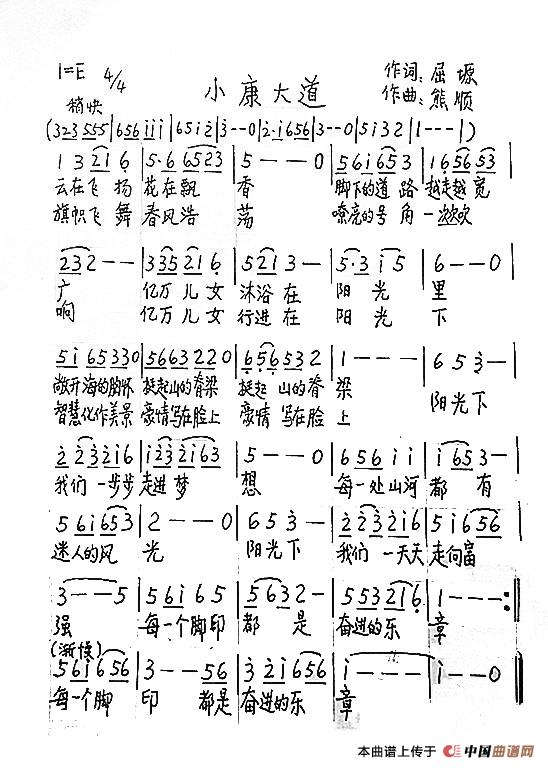 1=E 4/4
小康大道
作词:屈塬
作曲:熊顺
稍快
(323 555|656 i i i|65 i 2̇|3̇--0|2̇·i 656|3--0|5i32|1---|)
1 3 21 6|5·6 6523|5--0|56i653|165653|
云在飞扬 花在飘 香 脚下的道路 越走越宽
旗帜飞舞 春风浩 荡 嘹亮的号角 一次次吹
232--|335216|5213-|5·3 i5|6--0|
广 亿万儿女 沐浴在 阳光 里
响 亿万儿女 行进在 阳光 下
5i65330|5663220|6565332|1---|653̇-|
敞开海的胸怀 挺起山的脊梁 挺起 山的脊 梁
智慧化作美景 豪情写在脸上 豪情 写在脸 上 阳光下
2̇ 2̇3̇2̇i6|i2̇3̇2̇i63|5--0|656i i|i653-|
我们 一步步 走进 梦 想 每一处山河 都有
56i653|2--0|653̇-|2̇2̇3̇2̇i6|5i656|
迷人的风 光 阳光下 我们 一天天 走向富
3--5|56i65|5632-|553216|1---:‖
强 每一个脚印 都是 奋进的乐 章
(渐慢)
56i656|3--56|3̇ 2̇i656|i---|i--0‖
每一个脚 印 都是 奋进的乐 章
本曲谱上传于 中国曲谱网